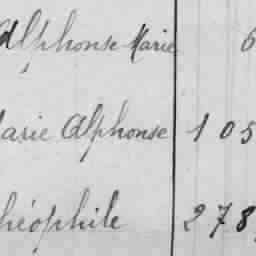 Alphonse Marie 6
Marie Alphonse 105
Théophile 278